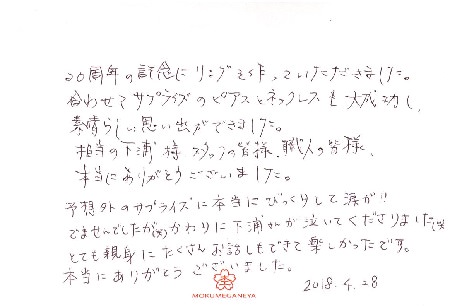 20周年の記念にリングを作っていただきました。
合わせてサプライズのピアスとネックレスも大成功し、
素晴らしい思い出ができました。
担当の下浦様 スタッフの皆様、職人の皆様、
本当にありがとうございました。
予想外のサプライズに本当にびっくりして涙が!!
でませんでしたが(笑)かわりに下浦さんが泣いてくださりました(笑)
とても親身にたくさんお話しもできて楽しかったです。
本当にありがとうございました。
2018.4.28
MOKUMEGANEYA